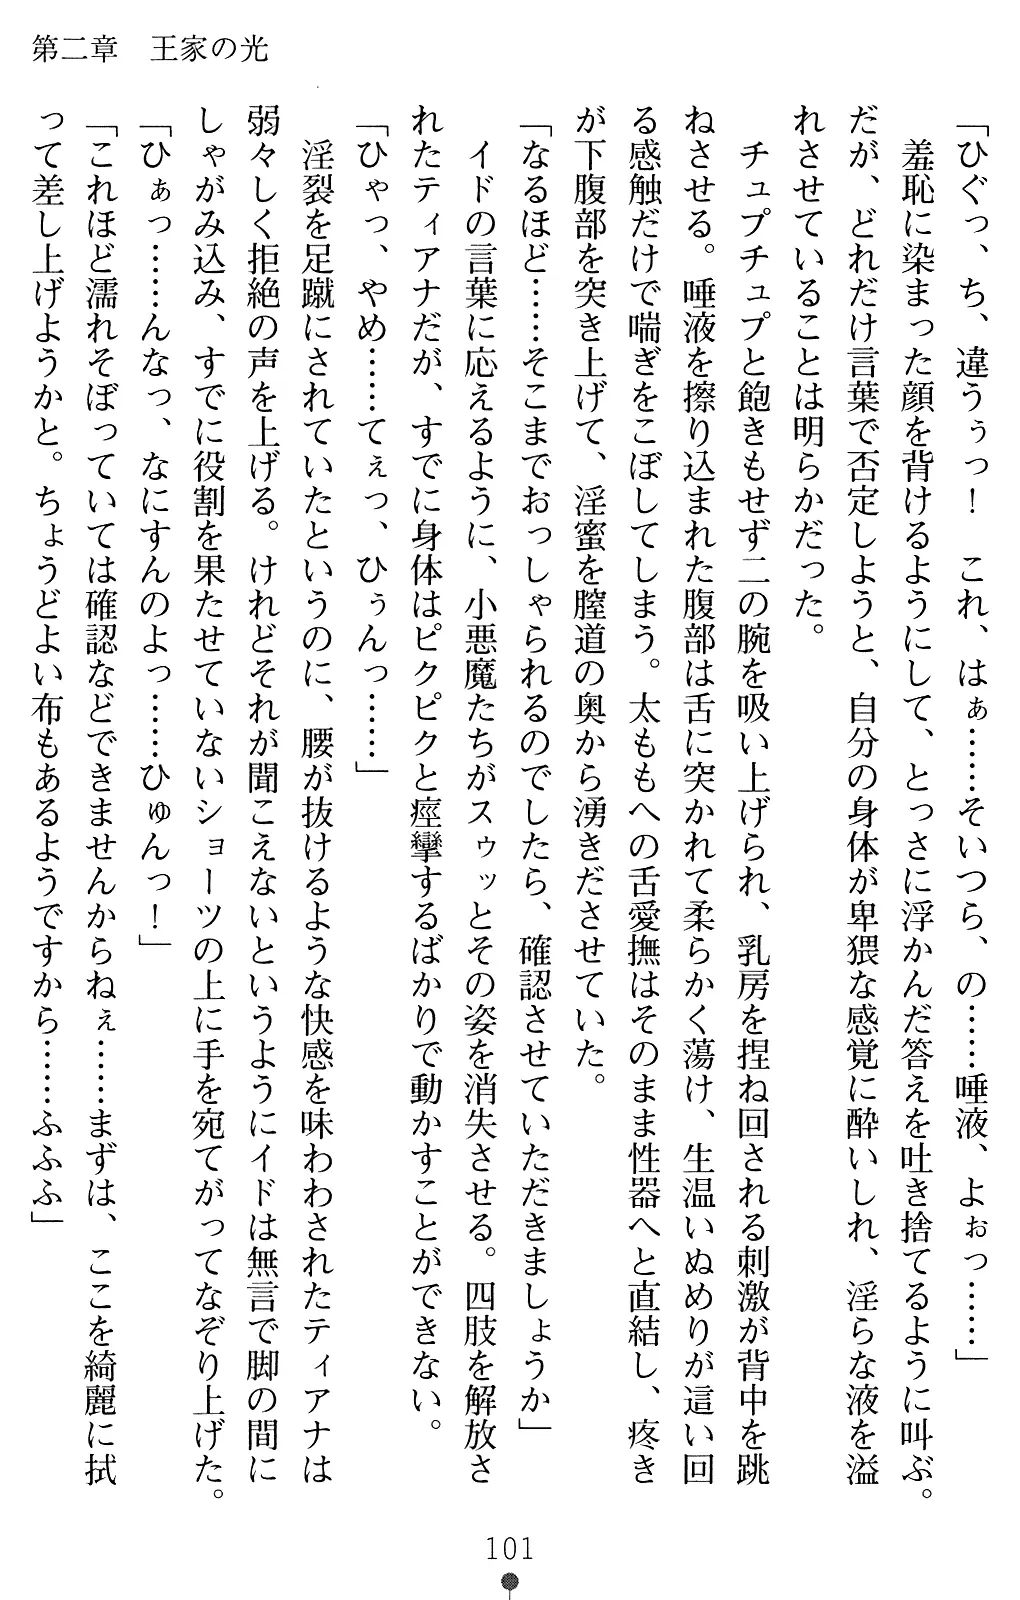 第二章　王家の光
「ひぐっ、ち、違うぅっ！　これ、はぁ……そいつら、の……唾液、よぉっ……」
　羞恥に染まった顔を背けるようにして、とっさに浮かんだ答えを吐き捨てるように叫ぶ。
だが、どれだけ言葉で否定しようと、自分の身体が卑猥な感覚に酔いしれ、淫らな液を溢
れさせていることは明らかだった。
　チュプチュプと飽きもせず二の腕を吸い上げられ、乳房を捏ね回される刺激が背中を跳
ねさせる。唾液を擦り込まれた腹部は舌に突かれて柔らかく蕩け、生温いぬめりが這い回
る感触だけで喘ぎをこぼしてしまう。太ももへの舌愛撫はそのまま性器へと直結し、疼き
が下腹部を突き上げて、淫蜜を膣道の奥から湧きださせていた。
「なるほど……そこまでおっしゃられるのでしたら、確認させていただきましょうか」
　イドの言葉に応えるように、小悪魔たちがスゥッとその姿を消失させる。四肢を解放さ
れたティアナだが、すでに身体はピクピクと痙攣するばかりで動かすことができない。
「ひゃっ、やめ……てぇっ、ひぅんっ……」
　淫裂を足蹴にされていたというのに、腰が抜けるような快感を味わわされたティアナは
弱々しく拒絶の声を上げる。けれどそれが聞こえないというようにイドは無言で脚の間に
しゃがみ込み、すでに役割を果たせていないショーツの上に手を宛てがってなぞり上げた。
「ひぁっ……んなっ、なにすんのよっ……ひゅんっ！」
「これほど濡れそぼっていては確認などできませんからねぇ……まずは、ここを綺麗に拭
って差し上げようかと。ちょうどよい布もあるようですから……ふふふ」
101